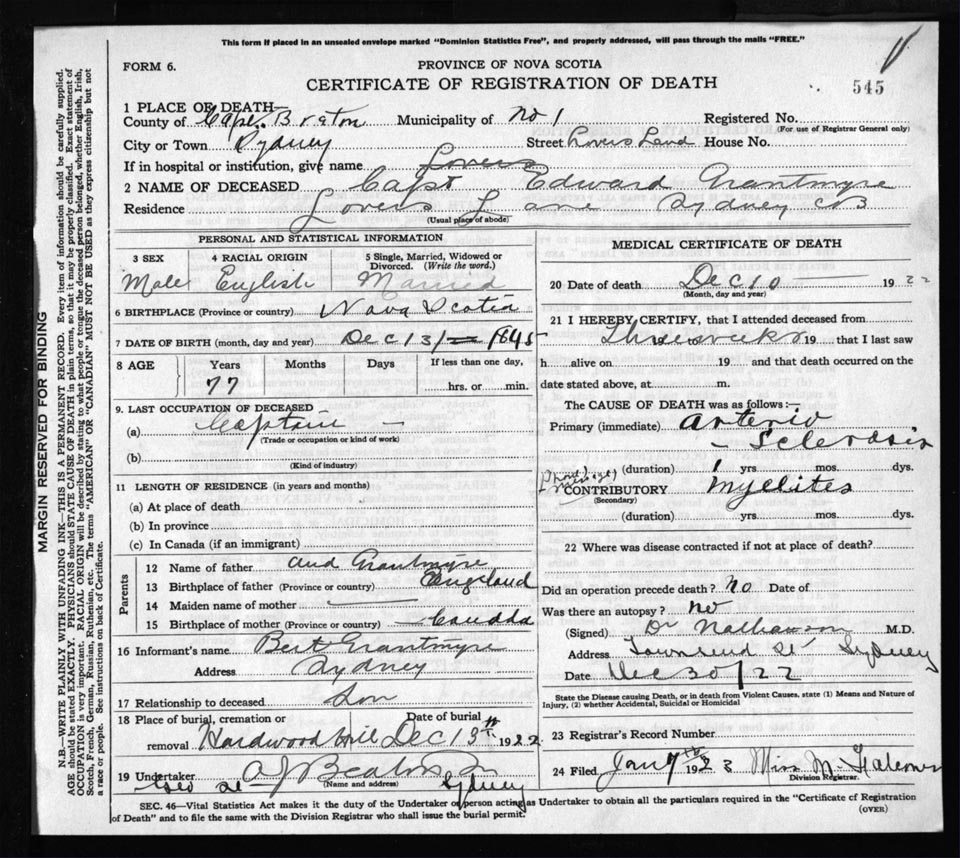 This form if placed in an unsealed envelope marked "Dominion Statistics Free", and properly addressed, will pass through the mails "FREE."
FORM 6.
PROVINCE OF NOVA SCOTIA
CERTIFICATE OF REGISTRATION OF DEATH
545
1 PLACE OF DEATH—
County of Cape Breton Municipality of No 1 Registered No.
(For use of Registrar General only)
City or Town Sydney Street Lovers Land House No.
If in hospital or institution, give name Lovers
2 NAME OF DECEASED Capt Edward Grantmyre
Residence Lovers Lane Sydney CB
(Usual place of abode)
PERSONAL AND STATISTICAL INFORMATION
3 SEX 4 RACIAL ORIGIN 5 Single, Married, Widowed or Divorced. (Write the word.)
Male English Married
6 BIRTHPLACE (Province or country) Nova Scotia
7 DATE OF BIRTH (month, day and year) Dec 13/ 1845
8 AGE Years Months Days If less than one day,
77 hrs. or min.
9. LAST OCCUPATION OF DECEASED
(a) Captain
(Trade or occupation or kind of work)
(b)
(Kind of industry)
11 LENGTH OF RESIDENCE (in years and months)
(a) At place of death
(b) In province
(c) In Canada (if an immigrant)
Parents
12 Name of father and Grantmyre
13 Birthplace of father (Province or country) England
14 Maiden name of mother
15 Birthplace of mother (Province or country) Canada
16 Informant's name Bert Grantmyre
Address Sydney
17 Relationship to deceased Son
18 Place of burial, cremation or removal Hardwood Hill Date of burial Dec 13th 1922
19 Undertaker A J Beaton
(Name and address)
Geo St Sydney
MEDICAL CERTIFICATE OF DEATH
20 Date of death Dec 10 1922
(Month, day and year)
21 I HEREBY CERTIFY, that I attended deceased from
Three weeks 19 that I last saw
h alive on 19 and that death occurred on the
date stated above, at m.
The CAUSE OF DEATH was as follows:—
Primary (immediate) Arterio
- Sclerosis
(duration) 1 yrs. mos. dys.
CONTRIBUTORY Myelites
(Secondary)
(duration) yrs. mos. dys.
22 Where was disease contracted if not at place of death?
Did an operation precede death? No Date of
Was there an autopsy? No
(Signed) Dr Nathanson M.D.
Address Townsend St Sydney
Date Dec 30/22
State the Disease causing Death, or in death from Violent Causes, state (1) Means and Nature of
Injury, (2) whether Accidental, Suicidal or Homicidal
23 Registrar's Record Number
24 Filed Jany 7th 1923 Miss M.
Division Registrar.
SEC. 46—Vital Statistics Act makes it the duty of the Undertaker or person acting as Undertaker to obtain all the particulars required in the "Certificate of Registration
of Death" and to file the same with the Division Registrar who shall issue the burial permit.
(OVER)
MARGIN RESERVED FOR BINDING
N.B.—WRITE PLAINLY WITH UNFADING INK—THIS IS A PERMANENT RECORD. Every item of information should be carefully supplied.
AGE should be stated EXACTLY. PHYSICIANS should STATE CAUSE OF DEATH in plain terms, so that it may be properly classified. Exact statement of
OCCUPATION is very important. RACIAL ORIGIN will be described by stating to what people or tongue the deceased person belonged, whether English, Irish,
Scotch, French, German, Russian, Ruthenian, etc. The terms "AMERICAN" OR "CANADIAN" MUST NOT BE USED as they express citizenship but not
a race or people. See instructions on back of Certificate.